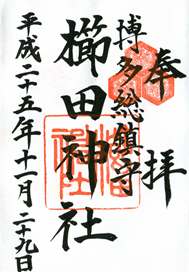 奉拝
博多総鎮守
櫛田神社
平成二十五年十一月二十九日